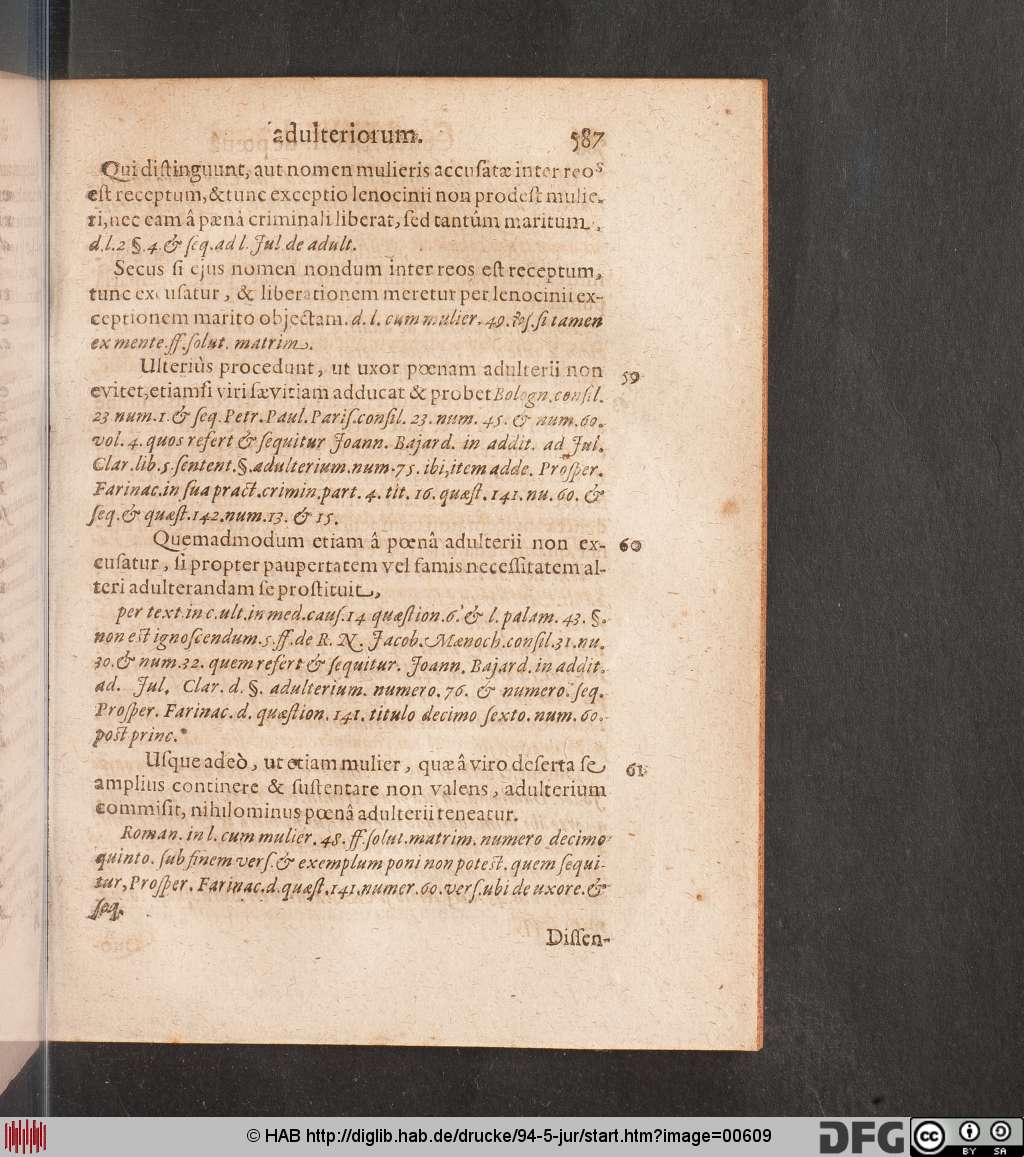 adulteriorum. 587
Qui distinguunt, aut nomen mulieris accusatæ inter reos
est receptum, & tunc exceptio lenocinii non prodest mulie-
ri, nec eam â pænâ criminali liberat, sed tantûm maritum.
d. l. 2 §. 4. & seq. ad l. Jul de adult.
Secus si ejus nomen nondum inter reos est receptum,
tunc excusatur, & liberationem meretur per lenocinii ex-
ceptionem marito objectam. d. l. cum mulier. 49. vers. si tamen
ex mente. ff. solut. matrim.
Ulteriùs procedunt, ut uxor pœnam adulterii non 59
evitet, etiamsi viri sævitiam adducat & probet Bologn. consil.
23 num. 1. & seq. Petr. Paul. Paris. consil. 23. num. 45. & num. 60.
vol. 4. quos refert & sequitur Joann. Bajard. in addit. ad Jul.
Clar. lib. 5. sentent. §. adulterium. num. 75. ibi, item adde. Prosper.
Farinac. in sua pract. crimin. part. 4. tit. 16. quæst. 141. nu. 60. &
seq. & quæst. 142. num. 13. & 15.
Quemadmodum etiam â pœnâ adulterii non ex- 60
cusatur, si propter paupertatem vel famis necessitatem al-
teri adulterandam se prostituit,
per text. in c. ult. in med. caus. 14 quæstion. 6. & l. palam. 43. §.
non est ignoscendum. 5. ff. de R. N. Jacob. Mænoch. consil. 31. nu.
30. & num. 32. quem refert & sequitur. Joann. Bajard. in addit.
ad. Jul. Clar. d. §. adulterium. numero. 76. & numero. seq.
Prosper. Farinac. d. quæstion. 141. titulo decimo sexto. num. 60.
post princ.
Usque adeò, ut etiam mulier, quæ â viro deserta se 61
amplius continere & sustentare non valens, adulterium
commisit, nihilominus pœnâ adulterii teneatur.
Roman. in l. cum mulier. 48. ff. solut. matrim. numero decimo
quinto. sub finem vers. & exemplum poni non potest. quem sequi-
tur, Prosper. Farinac. d. quæst. 141. numer. 60. vers. ubi de uxore. &
seq.
Dissen-
© HAB http://diglib.hab.de/drucke/94-5-jur/start.htm?image=00609
DFG
cc BY SA